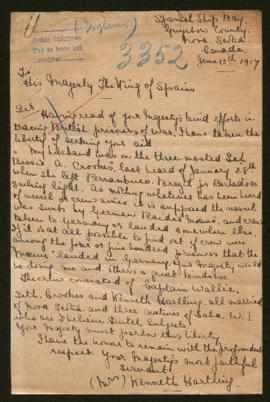 (Inglesa)
3352
Spanish Ship Bay
Guysboro County
Nova Scotia
Canada
June 13th 1917
To
His Majesty The King of Spain
Sir, Having read of your Majesty's kind efforts in
British prisoners of war, I have taken the
liberty of seeking your aid
My husband was on the three masted Sch.
Jessie A. Crooks, last heard of January 28th
when she left Pernambuco, Brazil, for Barbados
As nothing whatever has been heard
of vessel or crew since, it is supposed the vessel
was sunk by German Raider Moewe, and crew
taken to Germany or landed somewhere else.
If it is at all possible to find out if crew were
among the four or five hundred prisoners that the
Moewe landed in Germany, your Majesty would
be doing me and others a great kindness
The crew consisted of Captain Wallie,
Seth Crooks and Kenneth Hartling, all married
of Nova Scotia, and three natives of Saba, W. I.
who are I believe Dutch Subjects
Your Majesty must pardon this liberty
I have the honor to remain with the profoundest
respect, Your Majesty's most faithful
Servant
(Mrs) Kenneth Hartling